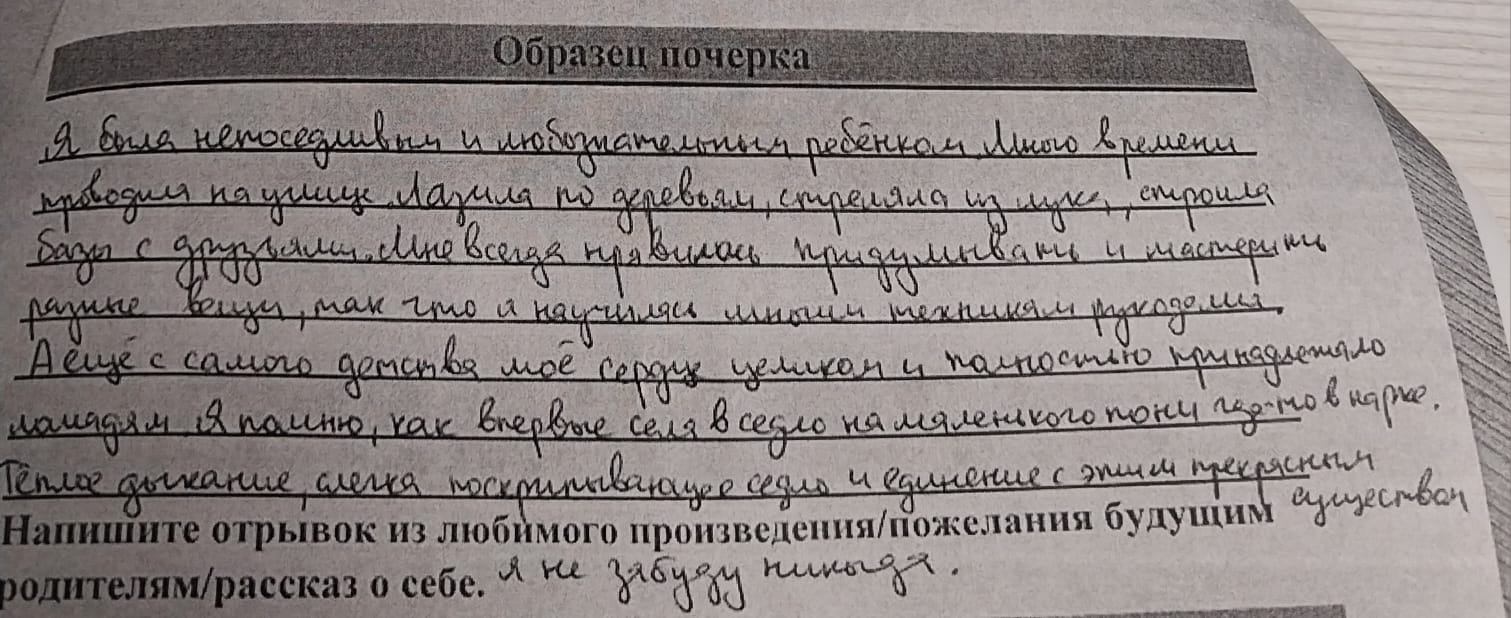 Образец почерка
Я была непоседливым и любознательным ребёнком. Много времени
проводила на улице. Лазила по деревьям, стреляла из лука, строила
базы с друзьями. Мне всегда нравилось придумывать и мастерить
разные вещи, так что я научилась многим техникам рукоделия.
А ещё с самого детства моё сердце целиком и полностью принадлежало
лошадям. Я помню, как впервые села в седло на маленького пони где-то в парке.
Тёплое дыхание, слегка поскрипывающее седло и единение с этим прекрасным
Напишите отрывок из любимого произведения/пожелания будущим существом
родителям/рассказ о себе. я не забуду никогда.